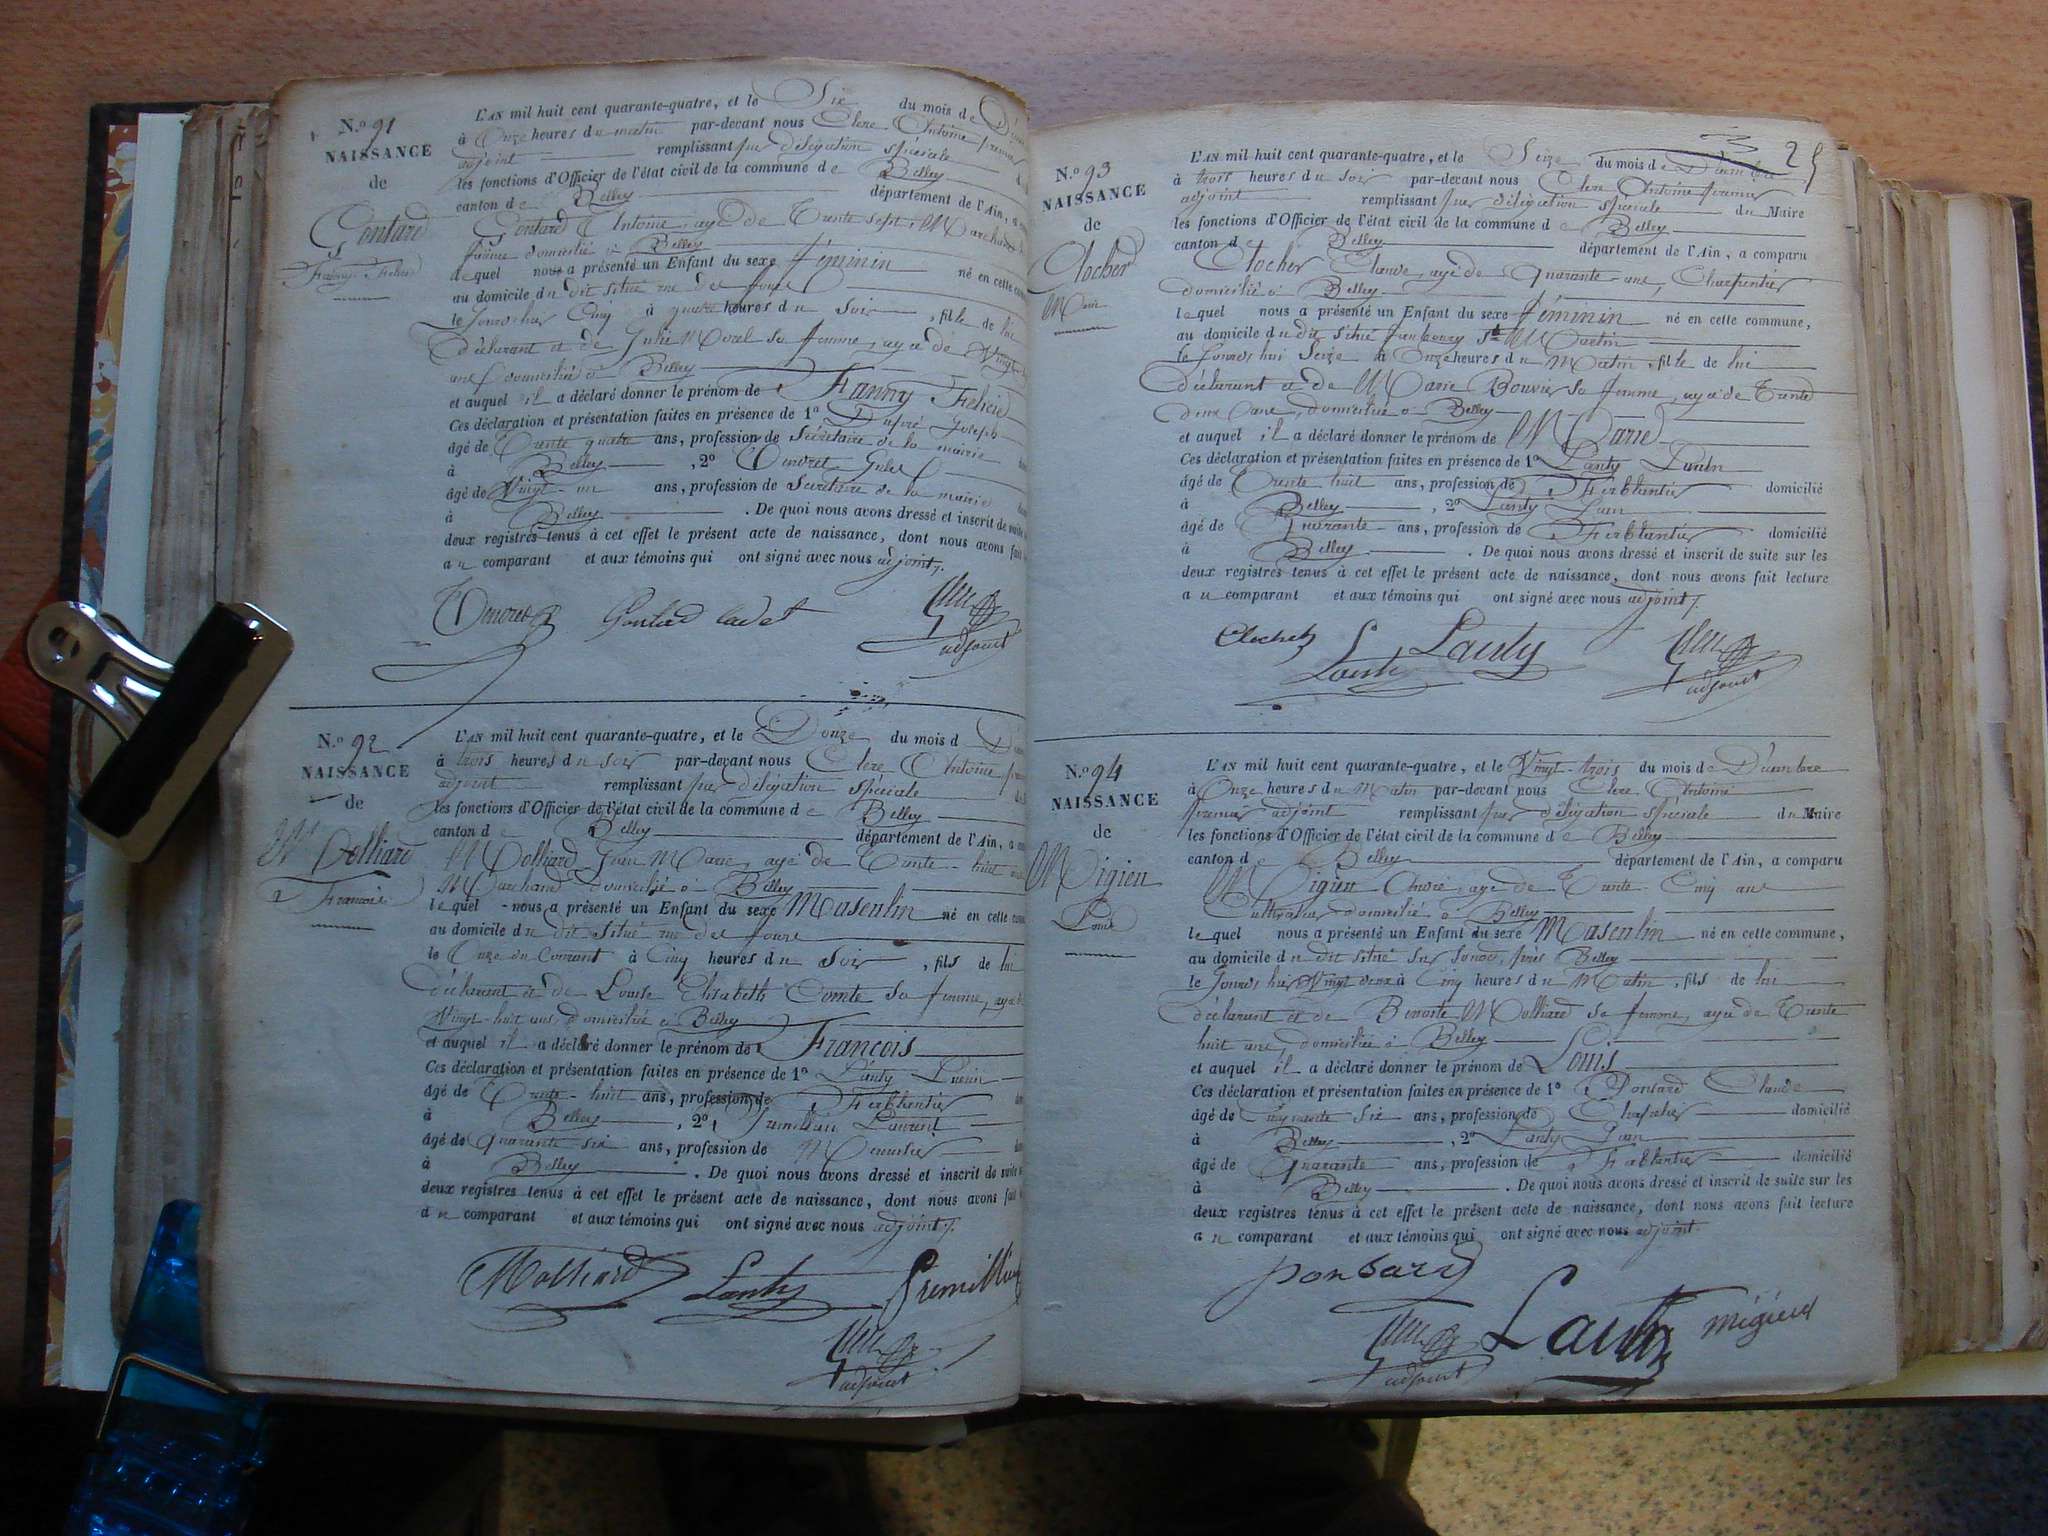 N.º 91
NAISSANCE
de
Gontard
Fanny Félicie
L'AN mil huit cent quarante-quatre, et le Six du mois de
à Onze heures du matin par-devant nous Clerc Antoine premier
adjoint remplissant par délégation spéciale
les fonctions d'Officier de l'état civil de la commune de Belley
canton de Belley département de l'Ain, a
Gontard Antoine, agé de Trente sept, Marchand
domicilié à Belley
lequel nous a présenté un Enfant du sexe féminin né en cette
au domicile du dit situé rue des fours
le Jours hier Cinq à quatre heures du soir, fille de lui
déclarant et de Julie Morel sa femme, agée de Vingt
ans domiciliée à Belley
et auquel il a déclaré donner le prénom de Fanny Félicie
Ces déclaration et présentation faites en présence de 1º Joseph
âgé de Trente quatre ans, profession de Secrétaire de la mairie
à Belley, 2º Tendret Jules
âgé de Vingt-un ans, profession de Secrétaire de la mairie
à Belley. De quoi nous avons dressé et inscrit de suite
deux registres tenus à cet effet le présent acte de naissance, dont nous avons fait
au comparant et aux témoins qui ont signé avec nous adjoint
Tendret Gontard cadet Clerc
adjoint
N.º 92
NAISSANCE
de
Molliard
François
L'AN mil huit cent quarante-quatre, et le Douze du mois d
à trois heures du soir par-devant nous Clerc Antoine
adjoint remplissant par délégation spéciale
les fonctions d'Officier de l'état civil de la commune de Belley
canton de Belley département de l'Ain, a
Molliard Jean Marie, agé de Trente-huit
Marchand domicilié à Belley
lequel nous a présenté un Enfant du sexe Masculin né en cette
au domicile du dit situé rue des fours
le Onze du Courant à Cinq heures du soir, fils de lui
déclarant et de Louise Elisabeth Comte sa femme, agée
Vingt-huit ans, domiciliée à Belley
et auquel il a déclaré donner le prénom de François
Ces déclaration et présentation faites en présence de 1º Lanty
âgé de Trente-huit ans, profession de Ferblantier
à Belley, 2º Laurent
âgé de Quarante six ans, profession de Menuisier
à Belley. De quoi nous avons dressé et inscrit de suite
deux registres tenus à cet effet le présent acte de naissance, dont nous avons fait
au comparant et aux témoins qui ont signé avec nous adjoint
Molliard Lanty
Clerc
adjoint
25
N.º 93
NAISSANCE
de
Clocher
Marie
L'AN mil huit cent quarante-quatre, et le Seize du mois de Décembre
à trois heures du soir par-devant nous Clerc Antoine premier
adjoint remplissant par délégation spéciale du Maire
les fonctions d'Officier de l'état civil de la commune de Belley
canton de Belley département de l'Ain, a comparu
Clocher Claude, agé de Quarante-ans, Charpentier
domicilié à Belley
lequel nous a présenté un Enfant du sexe féminin né en cette commune,
au domicile du dit situé faubourg St Martin
le Jourdhui Seize à Onze heures du Matin, fille de lui
déclarant et de Marie Bouvier sa femme, agée de Trente
deux ans, domiciliée à Belley
et auquel il a déclaré donner le prénom de Marie
Ces déclaration et présentation faites en présence de 1º Lanty
âgé de Trente huit ans, profession de Ferblantier domicilié
à Belley, 2º Lanty Jean
âgé de Quarante ans, profession de Ferblantier domicilié
à Belley. De quoi nous avons dressé et inscrit de suite sur les
deux registres tenus à cet effet le présent acte de naissance, dont nous avons fait lecture
au comparant et aux témoins qui ont signé avec nous adjoint
Clocher Lanty Lanty Clerc
adjoint
N.º 94
NAISSANCE
de
Migieu
Louis
L'AN mil huit cent quarante-quatre, et le Vingt-trois du mois de Décembre
à Onze heures du Matin par-devant nous Clerc Antoine
premier adjoint remplissant par délégation spéciale du Maire
les fonctions d'Officier de l'état civil de la commune de Belley
canton de Belley département de l'Ain, a comparu
Migieu André, agé de Trente-Cinq ans
Cultivateur domicilié à Belley
lequel nous a présenté un Enfant du sexe Masculin né en cette commune,
au domicile du dit situé près Belley
le Jours hier Vingt deux à Cinq heures du Matin, fils de lui
déclarant et de Benoite Molliard sa femme, agée de Trente
huit ans, domiciliée à Belley
et auquel il a déclaré donner le prénom de Louis
Ces déclaration et présentation faites en présence de 1º Ponsard Claude
âgé de Cinquante six ans, profession de Chapelier domicilié
à Belley, 2º Lanty Jean
âgé de Quarante ans, profession de Ferblantier domicilié
à Belley. De quoi nous avons dressé et inscrit de suite sur les
deux registres tenus à cet effet le présent acte de naissance, dont nous avons fait lecture
au comparant et aux témoins qui ont signé avec nous adjoint.
ponsard
Clerc Lanty migieu
adjoint